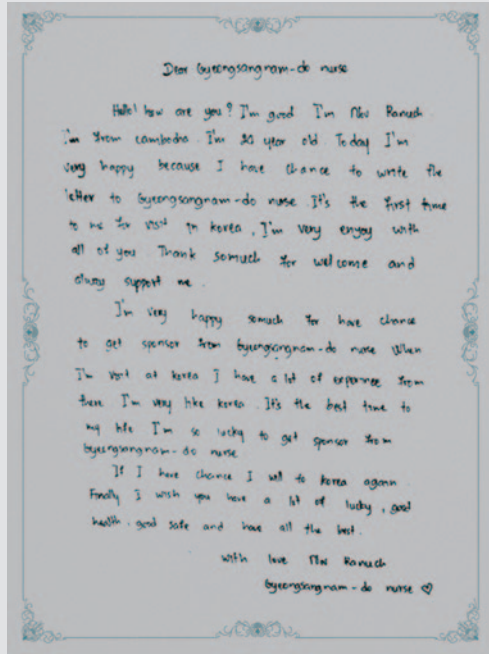 Dear Gyeongsangnam-do nurse
Hello! how are you? I'm good I'm Ranuch
I'm from cambodia. I'm year old. Today I'm
very happy because I have chance to write the
letter to Gyeongsangnam-do nurse It's the first time
to me for visit in korea, I'm very enjoy with
all of you Thank somuch for welcome and
alway support me.
I'm very happy somuch for have chance
to get sponsor from Gyeongsangnam-do nurse When
I'm visit at korea I have a lot of experience from
there I'm very like korea. It's the best time to
my life I'm so lucky to get sponsor from
Gyeongsangnam-do nurse
If I have chance I will to korea again
Finally I wish you have a lot of lucky, good
health, good safe and have all the best.
with love Ranuch
Gyeongsangnam-do nurse ♡